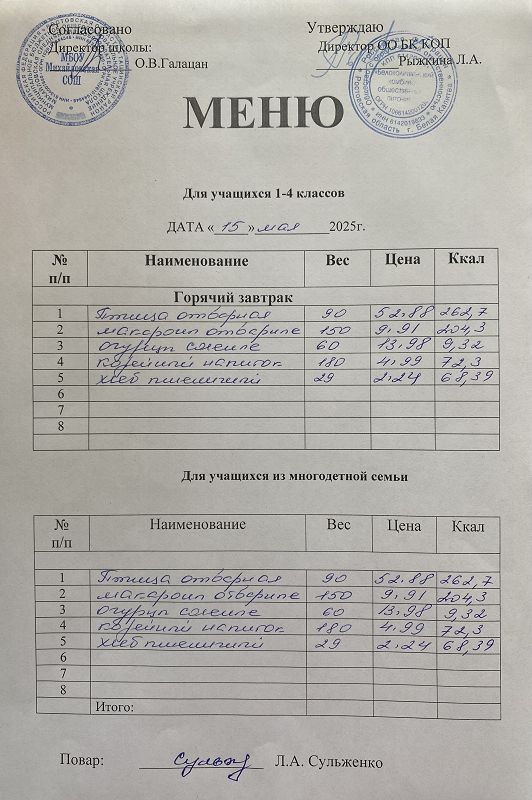 Согласовано Утверждаю
Директор школы: Директор ОО БК КОП
О.В.Галацан Рыжкина Л.А.
МБОУ
Михайловская
СОШ
МЕНЮ
Для учащихся 1-4 классов
ДАТА «15» мая 2025г.
№ п/п Наименование Вес Цена Ккал
Горячий завтрак
1 Птица отварная 90 52.88 262,7
2 макароны отварные 150 9,91 204,3
3 огурцы соленые 60 13,98 9,32
4 кофейный напиток 180 4,99 72,3
5 хлеб пшеничный 29 2,24 68,39
6
7
8
Для учащихся из многодетной семьи
№ п/п Наименование Вес Цена Ккал
1 Птица отварная 90 52.88 262,7
2 макароны отварные 150 9,91 204,3
3 огурцы соленые 60 13,98 9,32
4 кофейный напиток 180 4,99 72,3
5 хлеб пшеничный 29 2,24 68,39
6
7
8
Итого:
Повар: Сульж Л.А. Сульженко